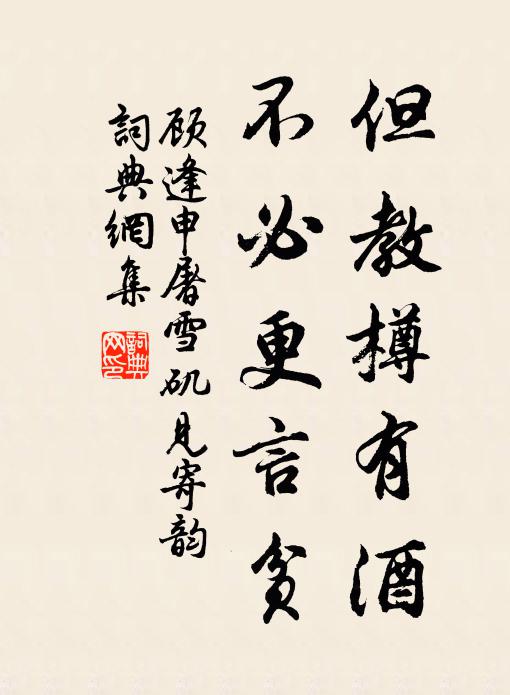 但教樽有酒
不必更言貧
顾逢申屠雪矶見寄韵
詞典網集
詞典网印